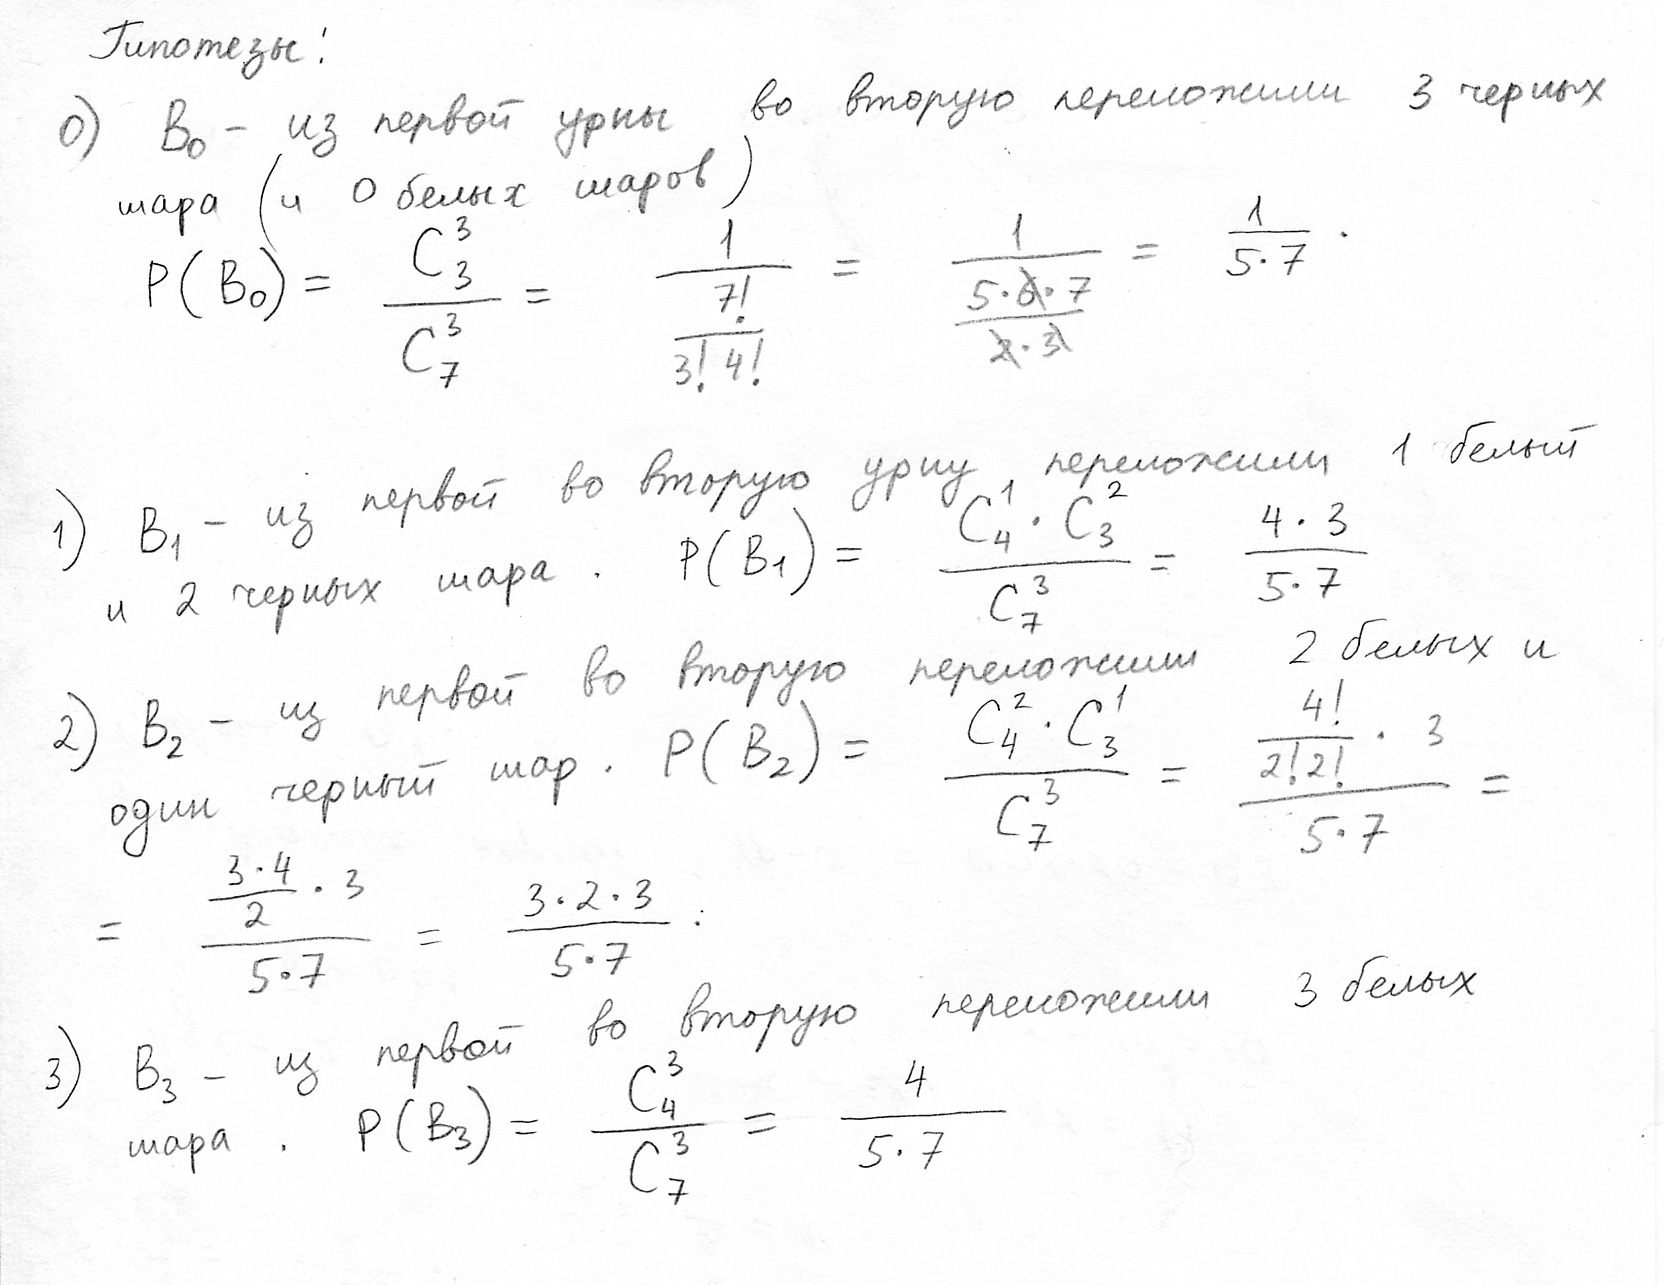 Гипотезы:
0) B₀ – из первой урны во вторую переложили 3 черных
шара (и 0 белых шаров)
P(B₀) = C₃³ / C₇³ = 1 / (7! / (3! 4!)) = 1 / ((5·6·7) / (2·3)) = 1 / (5·7) .
1) B₁ – из первой во вторую урну переложили 1 белый
и 2 черных шара . P(B₁) = (C₄¹ · C₃²) / C₇³ = (4·3) / (5·7)
2) B₂ – из первой во вторую переложили 2 белых и
один черный шар . P(B₂) = (C₄² · C₃¹) / C₇³ = ((4! / (2! 2!)) · 3) / (5·7) =
= ((3·4 / 2) · 3) / (5·7) = (3·2·3) / (5·7) .
3) B₃ – из первой во вторую переложили 3 белых
шара . P(B₃) = C₄³ / C₇³ = 4 / (5·7)